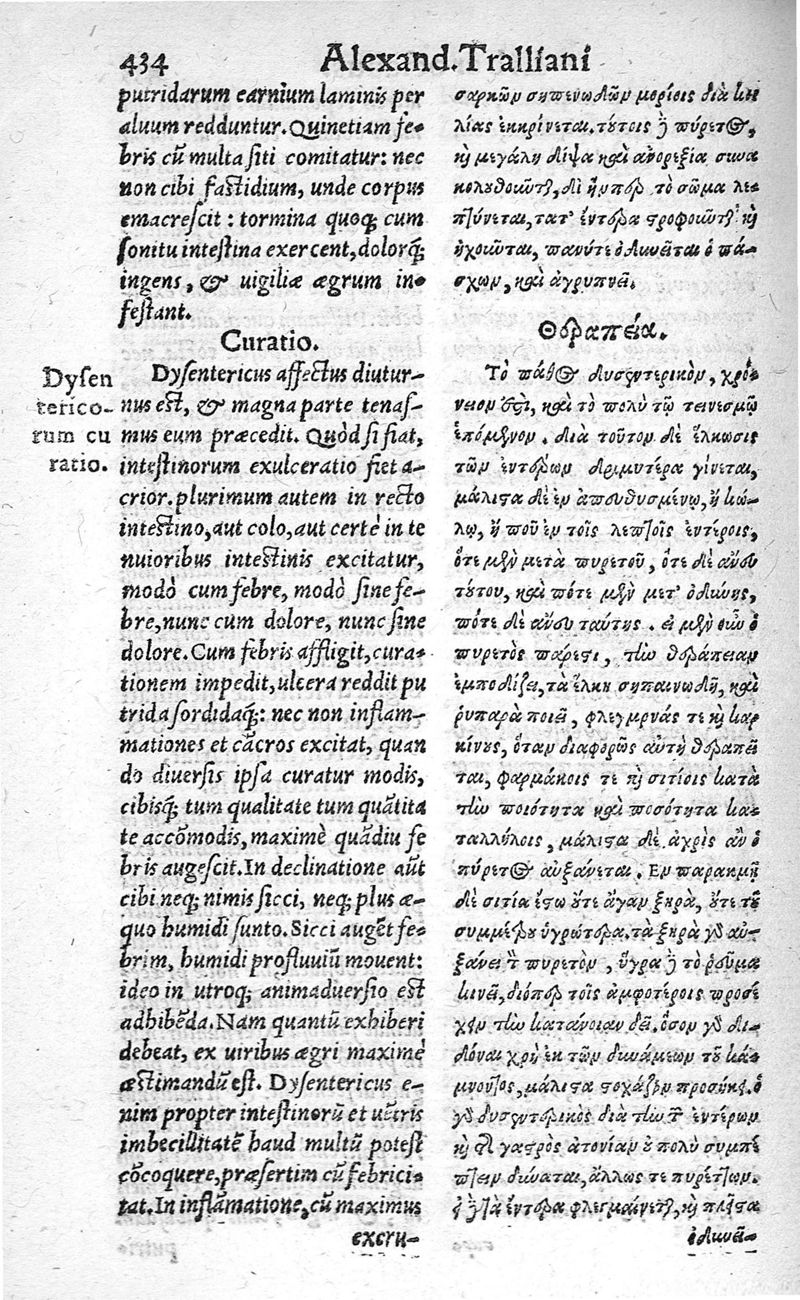 434
Alexand. Tralliani
putridarum carnium laminis per
aluum redduntur. Quinetiam fe-
bris cū multa siti comitatur: nec
non cibi fastidium, unde corpus
emacrescit: tormina quoq; cum
sonitu intestina exercent, dolorq́;
ingens, & uigiliæ ægrum in-
festant.
Curatio.
Dysen
terico-
rum cu
ratio.
Dysentericus affectus diutur-
nus est, & magna parte tenas-
mus eum præcedit. Quòd si fiat,
intestinorum exulceratio fiet a-
crior. plurimum autem in recto
intestino, aut colo, aut certè in te
nuioribus intestinis excitatur,
modò cum febre, modò sine fe-
bre, nunc cum dolore, nunc sine
dolore. Cum febris affligit, cura-
tionem impedit, ulcera reddit pu
trida sordidaq́;: nec non inflam-
mationes et cācros excitat, quan
do diuersis ipsa curatur modis,
cibisq́; tum qualitate tum quātita
te accōmodis, maximè quādiu fe
bris augescit. In declinatione aūt
cibi neq; nimis sicci, neq; plus æ-
quo humidi sunto. Sicci augēt fe-
brim, humidi profluuiū mouent:
ideo in utroq; animaduersio est
adhibēda. Nam quantū exhiberi
debeat, ex uiribus ægri maximè
æstimandū est. Dysentericus e-
nim propter intestinorū et uētris
imbecillitatē haud multū potest
cōcoquere, præsertim cū febrici-
tat. In inflāmatione, cū maximus
excru-
σαρκῶν σηπενωδῶν μορίοις διὰ κοι
λίας ἐκκρίνεται. τούτοις ἢ πύρετος,
καὶ μεγάλη δίψα καὶ ἀνορεξία συνα
κολουθοῦντ, δι ἥνπερ τὸ σῶμα λε-
πτύνεται, τατ' ἔντερα στροφοῦντ καὶ
ἠχοῦνται, πανύτε ὀδυνεῖται ὁ πά-
σχων, καὶ ἀγρυπνεῖ.
Θεραπεία.
Τὸ πάθος δυσεντερικὸν, χρό-
νειον ἐστὶ, καὶ τὸ πολὺ τῷ τεινεσμῷ
ἑπόμενον. διὰ τοῦτον δὲ ἕλκωσις
τῶν ἐντέρων δριμυτέρα γίνεται,
μάλιστα δὲ ἐν ἀπευθυσμένῳ, ἢ κώ-
λῳ, ἢ που ἐν τοῖς λεπτοῖς ἐντέροις,
ὅτε μὲν μετὰ πυρετοῦ, ὅτε δὲ ἄνευ
τούτου, καὶ πότε μὲν μετ' ὀδύνης,
πότε δὲ ἄνευ ταύτης. εἰ μὲν οὖν ὁ
πυρετὸς πάρεστι, τὴν θεραπείαν
ἐμποδίζει, τὰ ἕλκη σηπαινωδῆ, καὶ
ῥυπαρὰ ποιεῖ, φλεγμονάς τε καὶ καρ
κίνους, ὅταν διαφορῶς αὐτὴ θεραπεῖ
ται, φαρμάκοις τε καὶ σιτίοις κατὰ
τὴν ποιότητα καὶ ποσότητα κα-
ταλλήλοις, μάλιστα δὲ ἀχρὶς ἂν ὁ
πύρετος αὐξάνεται. Ἐν παρακμῇ
δὲ σιτία ἔστω οὔτε ἄγαν ξηρὰ, οὔτε τοῦ
συμμέτρου ὑγρώτερα. τὰ ξηρὰ γὰρ αὐ-
ξάνει τὸν πυρετὸν, ὕγρα ἢ τὸ ῥεῦμα
κινεῖ, διόπερ τοῖς ἀμφοτέροις προσέ
χειν τὴν κατάνοιαν δεῖ. ὅσον γὰρ δι-
δόναι χρὴ ἐκ τῶν δυνάμεων τοῦ κά-
μνοντος, μάλιστα στοχάζειν προσήκει. ὁ
γὰρ δυσεντερικὸς διὰ τὴν τῶν ἐντέρων
καὶ τῆς γαστρὸς ἀτονίαν οὐ πολὺ συμπέ
πτειν δύναται, ἄλλως τε πυρέττων.
εἰ ἢ τὰ ἔντερα φλεγμαίνετ, καὶ πλεῖστα
ὀδυνεῖ-